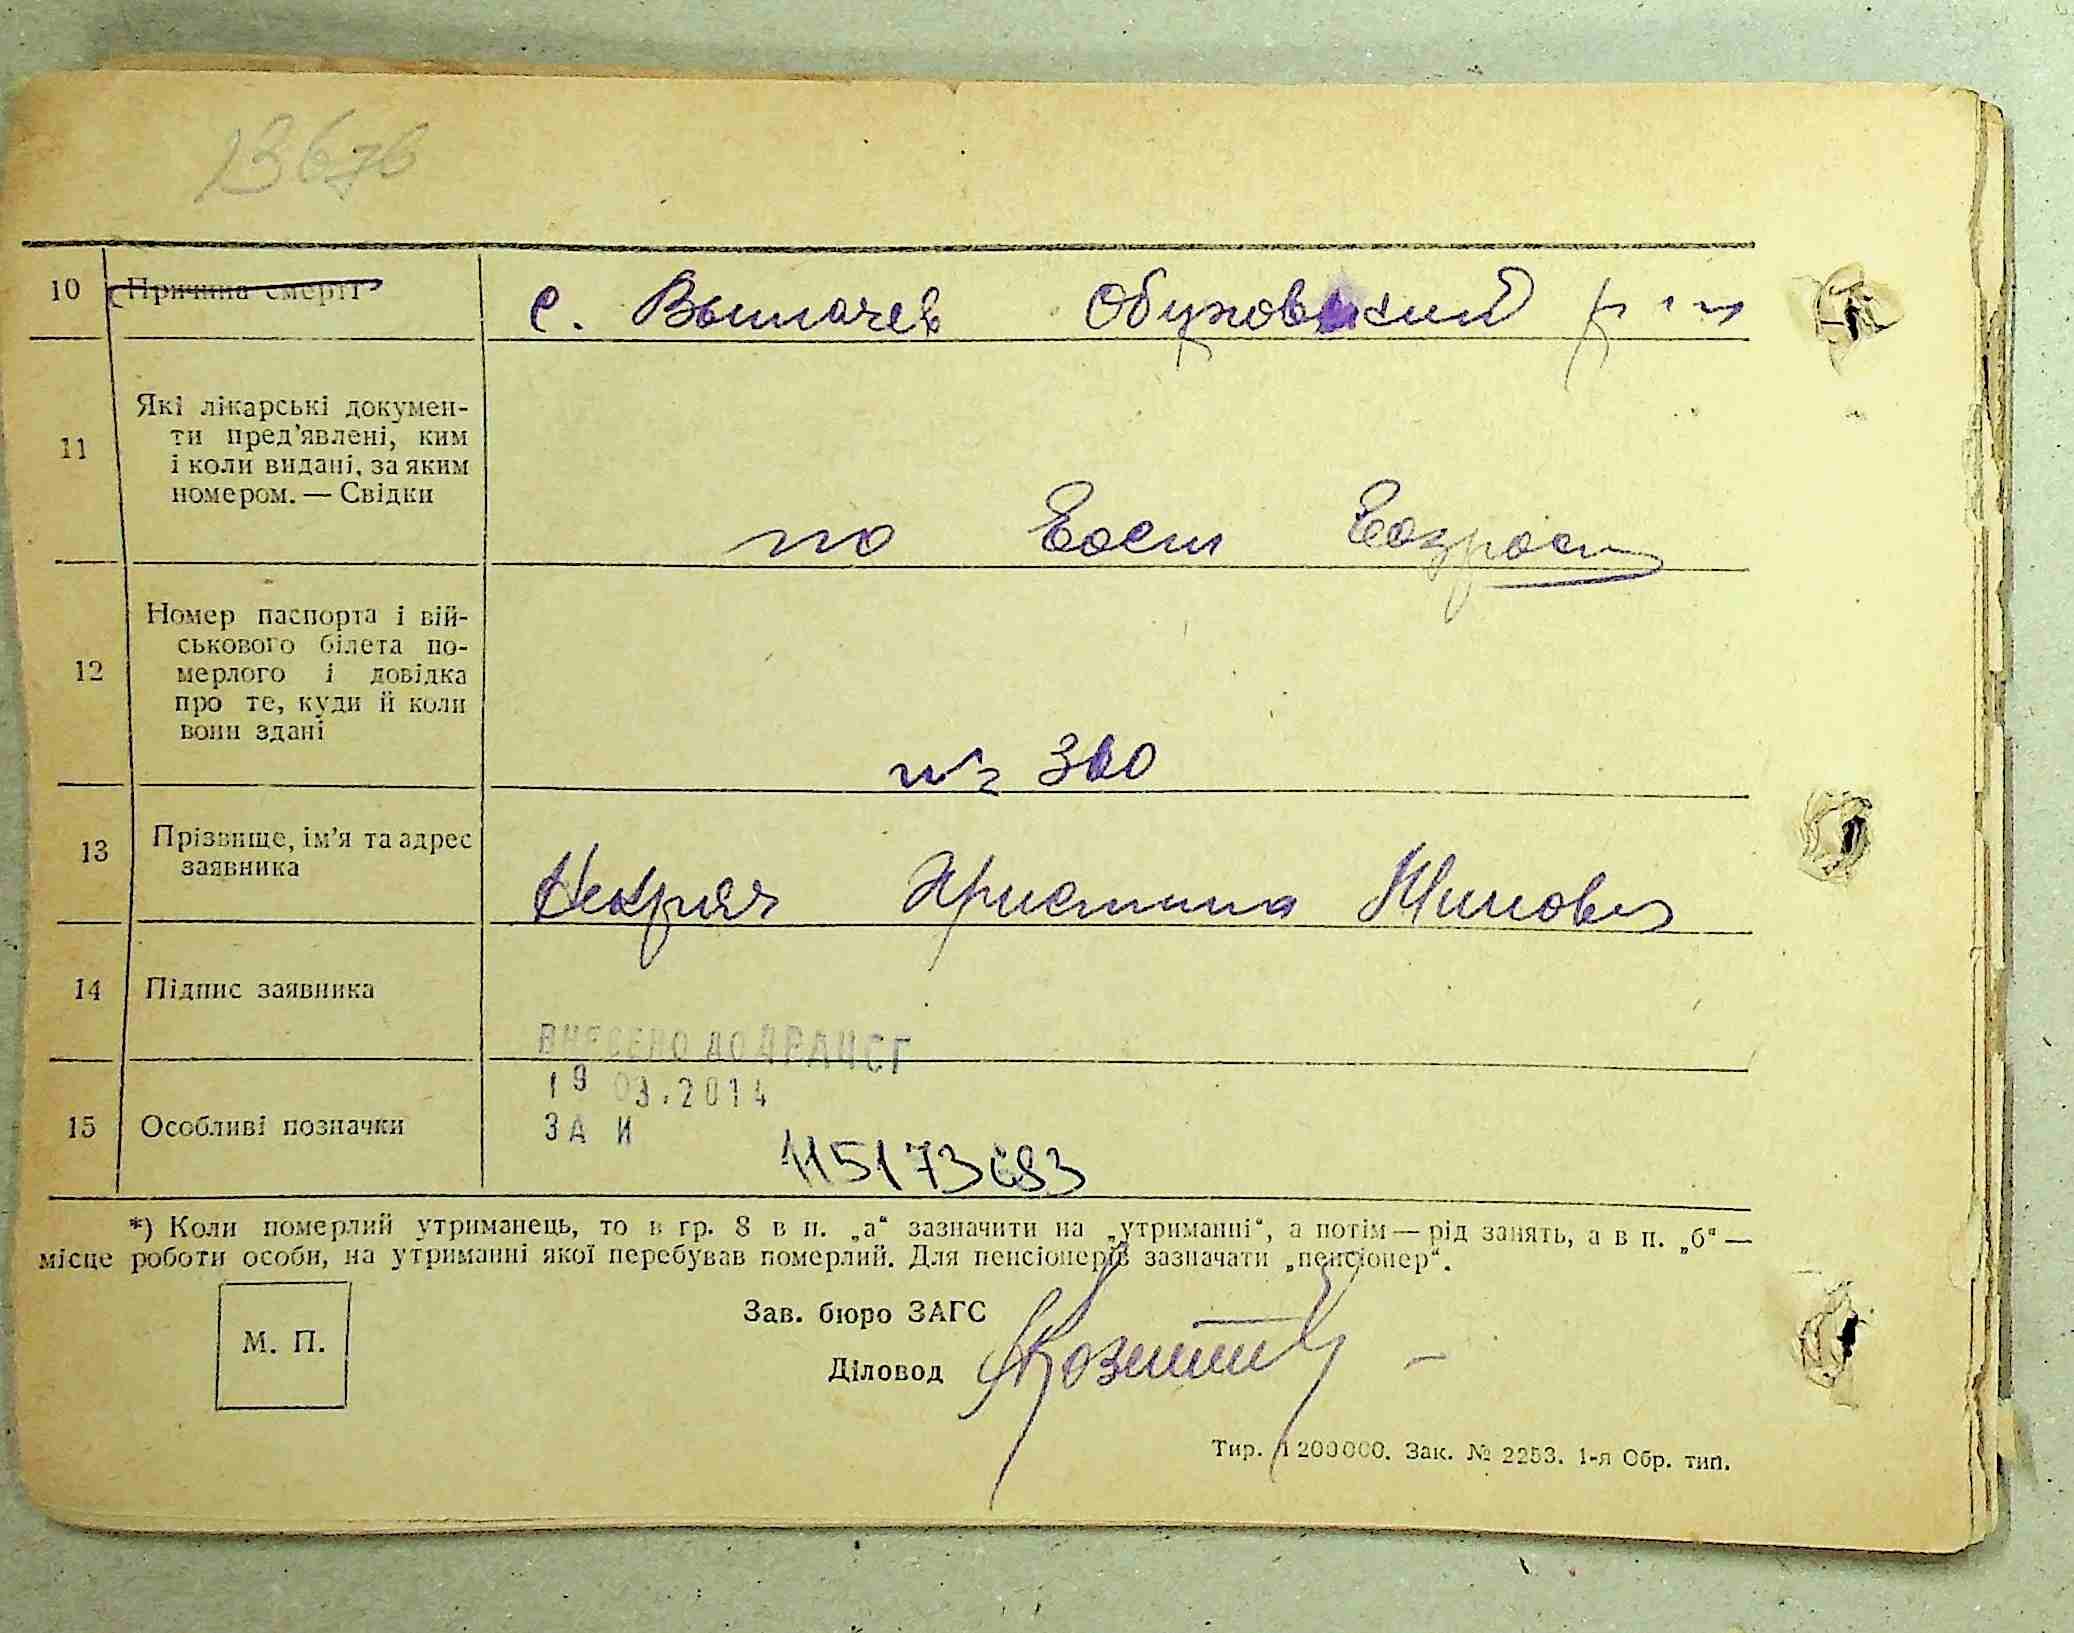 10
Причина смерті
с. Вытачев Обуховский р-н
11
Які лікарські докумен-
ти пред'явлені, ким
і коли видані, за яким
номером. — Свідки
по
12
Номер паспорта і вій-
ськового білета по-
мерлого і довідка
про те, куди й коли
вони здані
360
13
Прізвище, ім'я та адрес
заявника
Христина
14
Підпис заявника
ВНЕСЕНО ДО ДРАЦСГ
19 03.2014
15
Особливі позначки
ЗА И
115173693
*) Коли померлий утриманець, то в гр. 8 в п. „а“ зазначити на „утриманні“, а потім — рід занять, а в п. „б“ —
місце роботи особи, на утриманні якої перебував померлий. Для пенсіонерів зазначати „пенсіонер“.
М. П.
Зав. бюро ЗАГС
Діловод
Тир. 1200000. Зак. № 2253. 1-я Обр. тип.